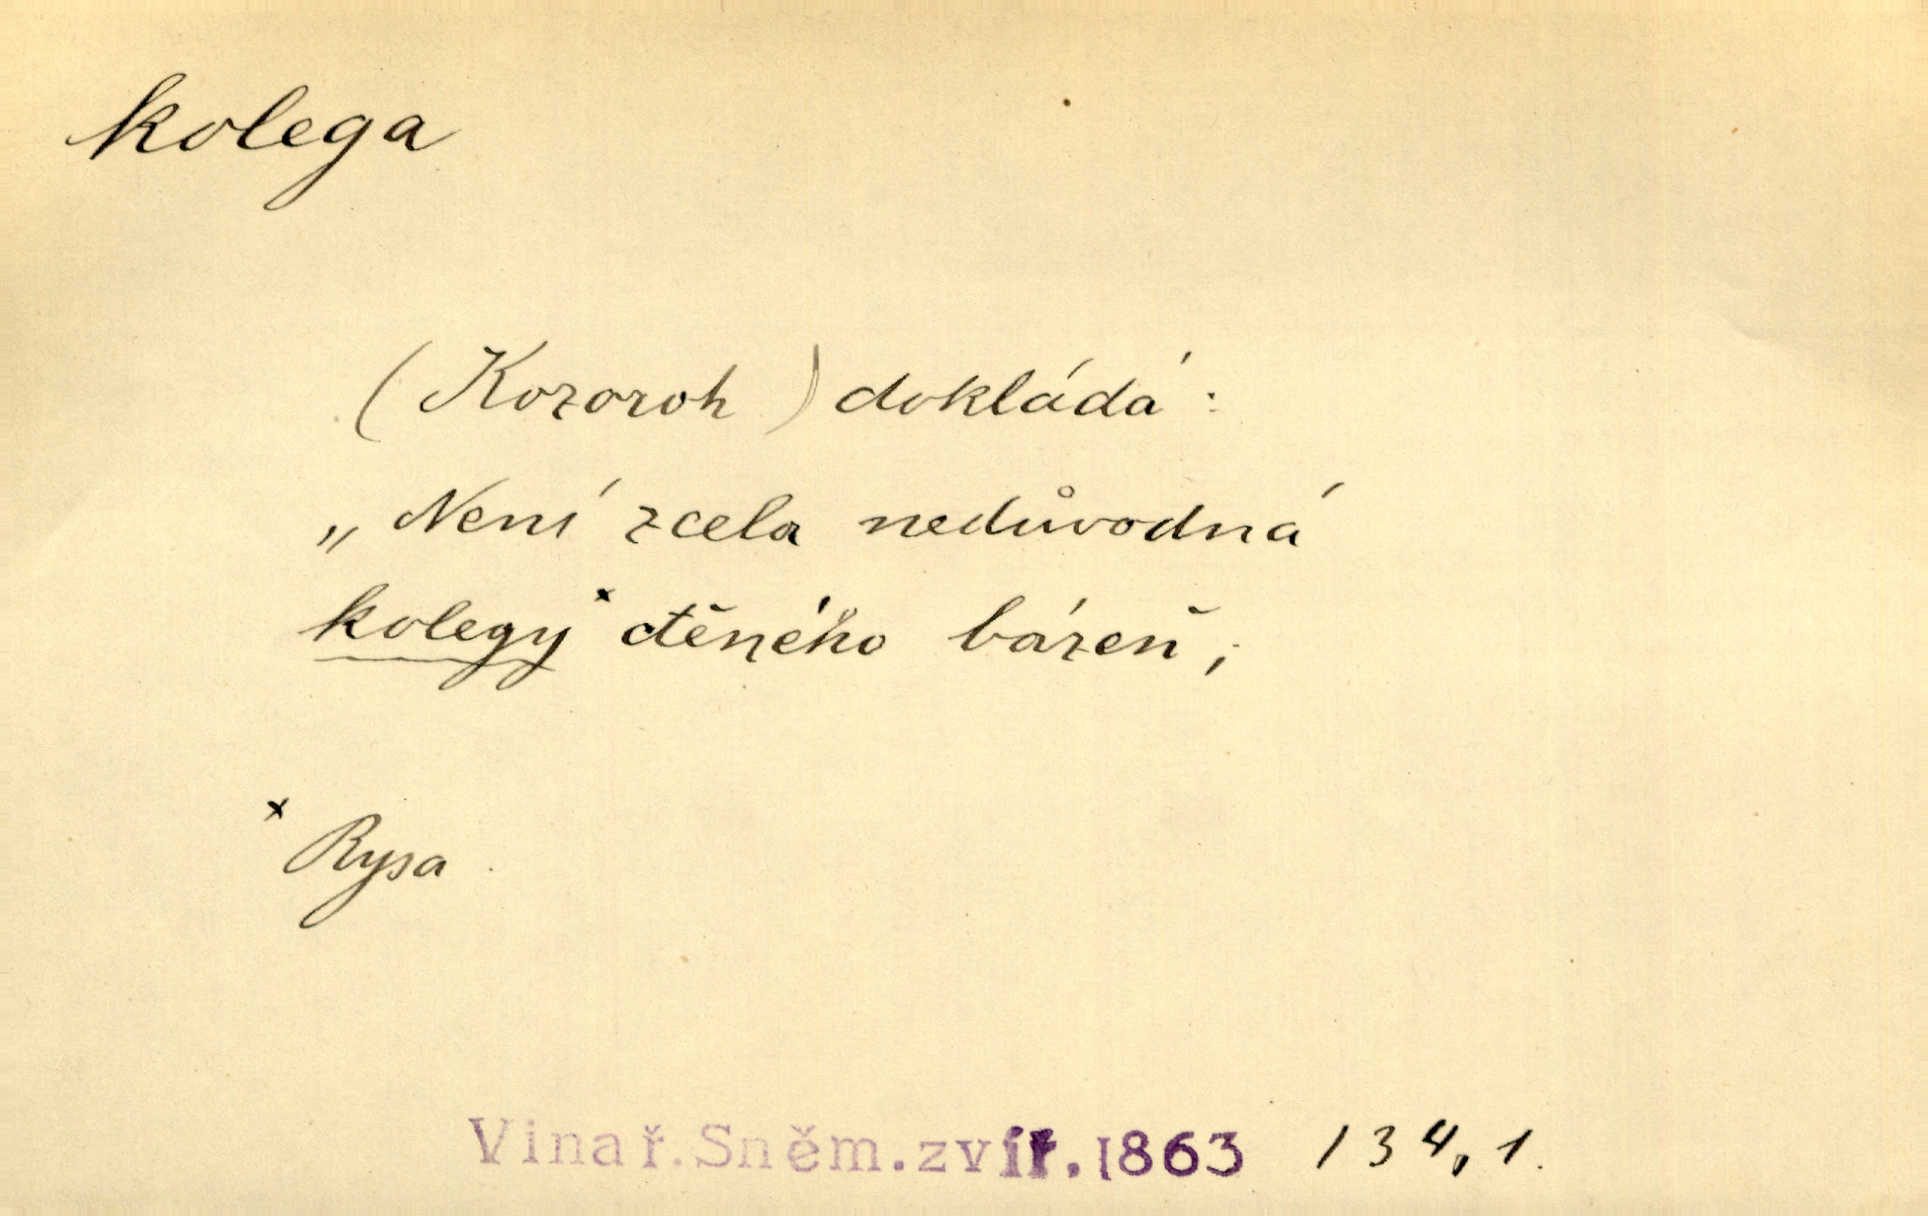 kolega
(Kozoroh) dokládá:
„Není zcela nedůvodná
kolegy× ctěného bázeň;
× Rysa
Vinař. Sněm. zvíř. 1863 134, 1.